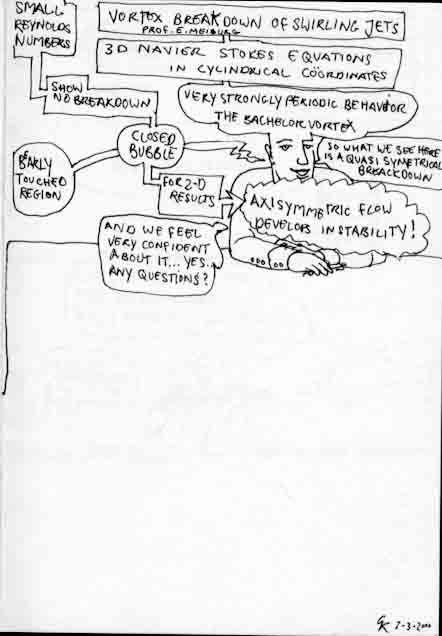 SMALL
REYNOLDS
NUMBERS
VORTEX BREAKDOWN OF SWIRLING JETS
PROF. E. MEIBURG
3D NAVIER STOKES EQUATIONS
IN CYLINDRICAL COÖRDINATES
SHOW
NO BREAKDOWN
VERY STRONGLY PERIODIC BEHAVIOR
THE BACHELOR VORTEX
CLOSED
BUBBLE
SO WHAT WE SEE HERE
IS A QUASI SYMETRICAL
BREACKDOWN
BEARLY
TOUCHED
REGION
FOR 2-D
RESULTS
AXISYMMETRIC FLOW
DEVELOBS INSTABILITY!
AND WE FEEL
VERY CONFIDENT
ABOUT IT... YES..
ANY QUESTIONS?
2-3-2000